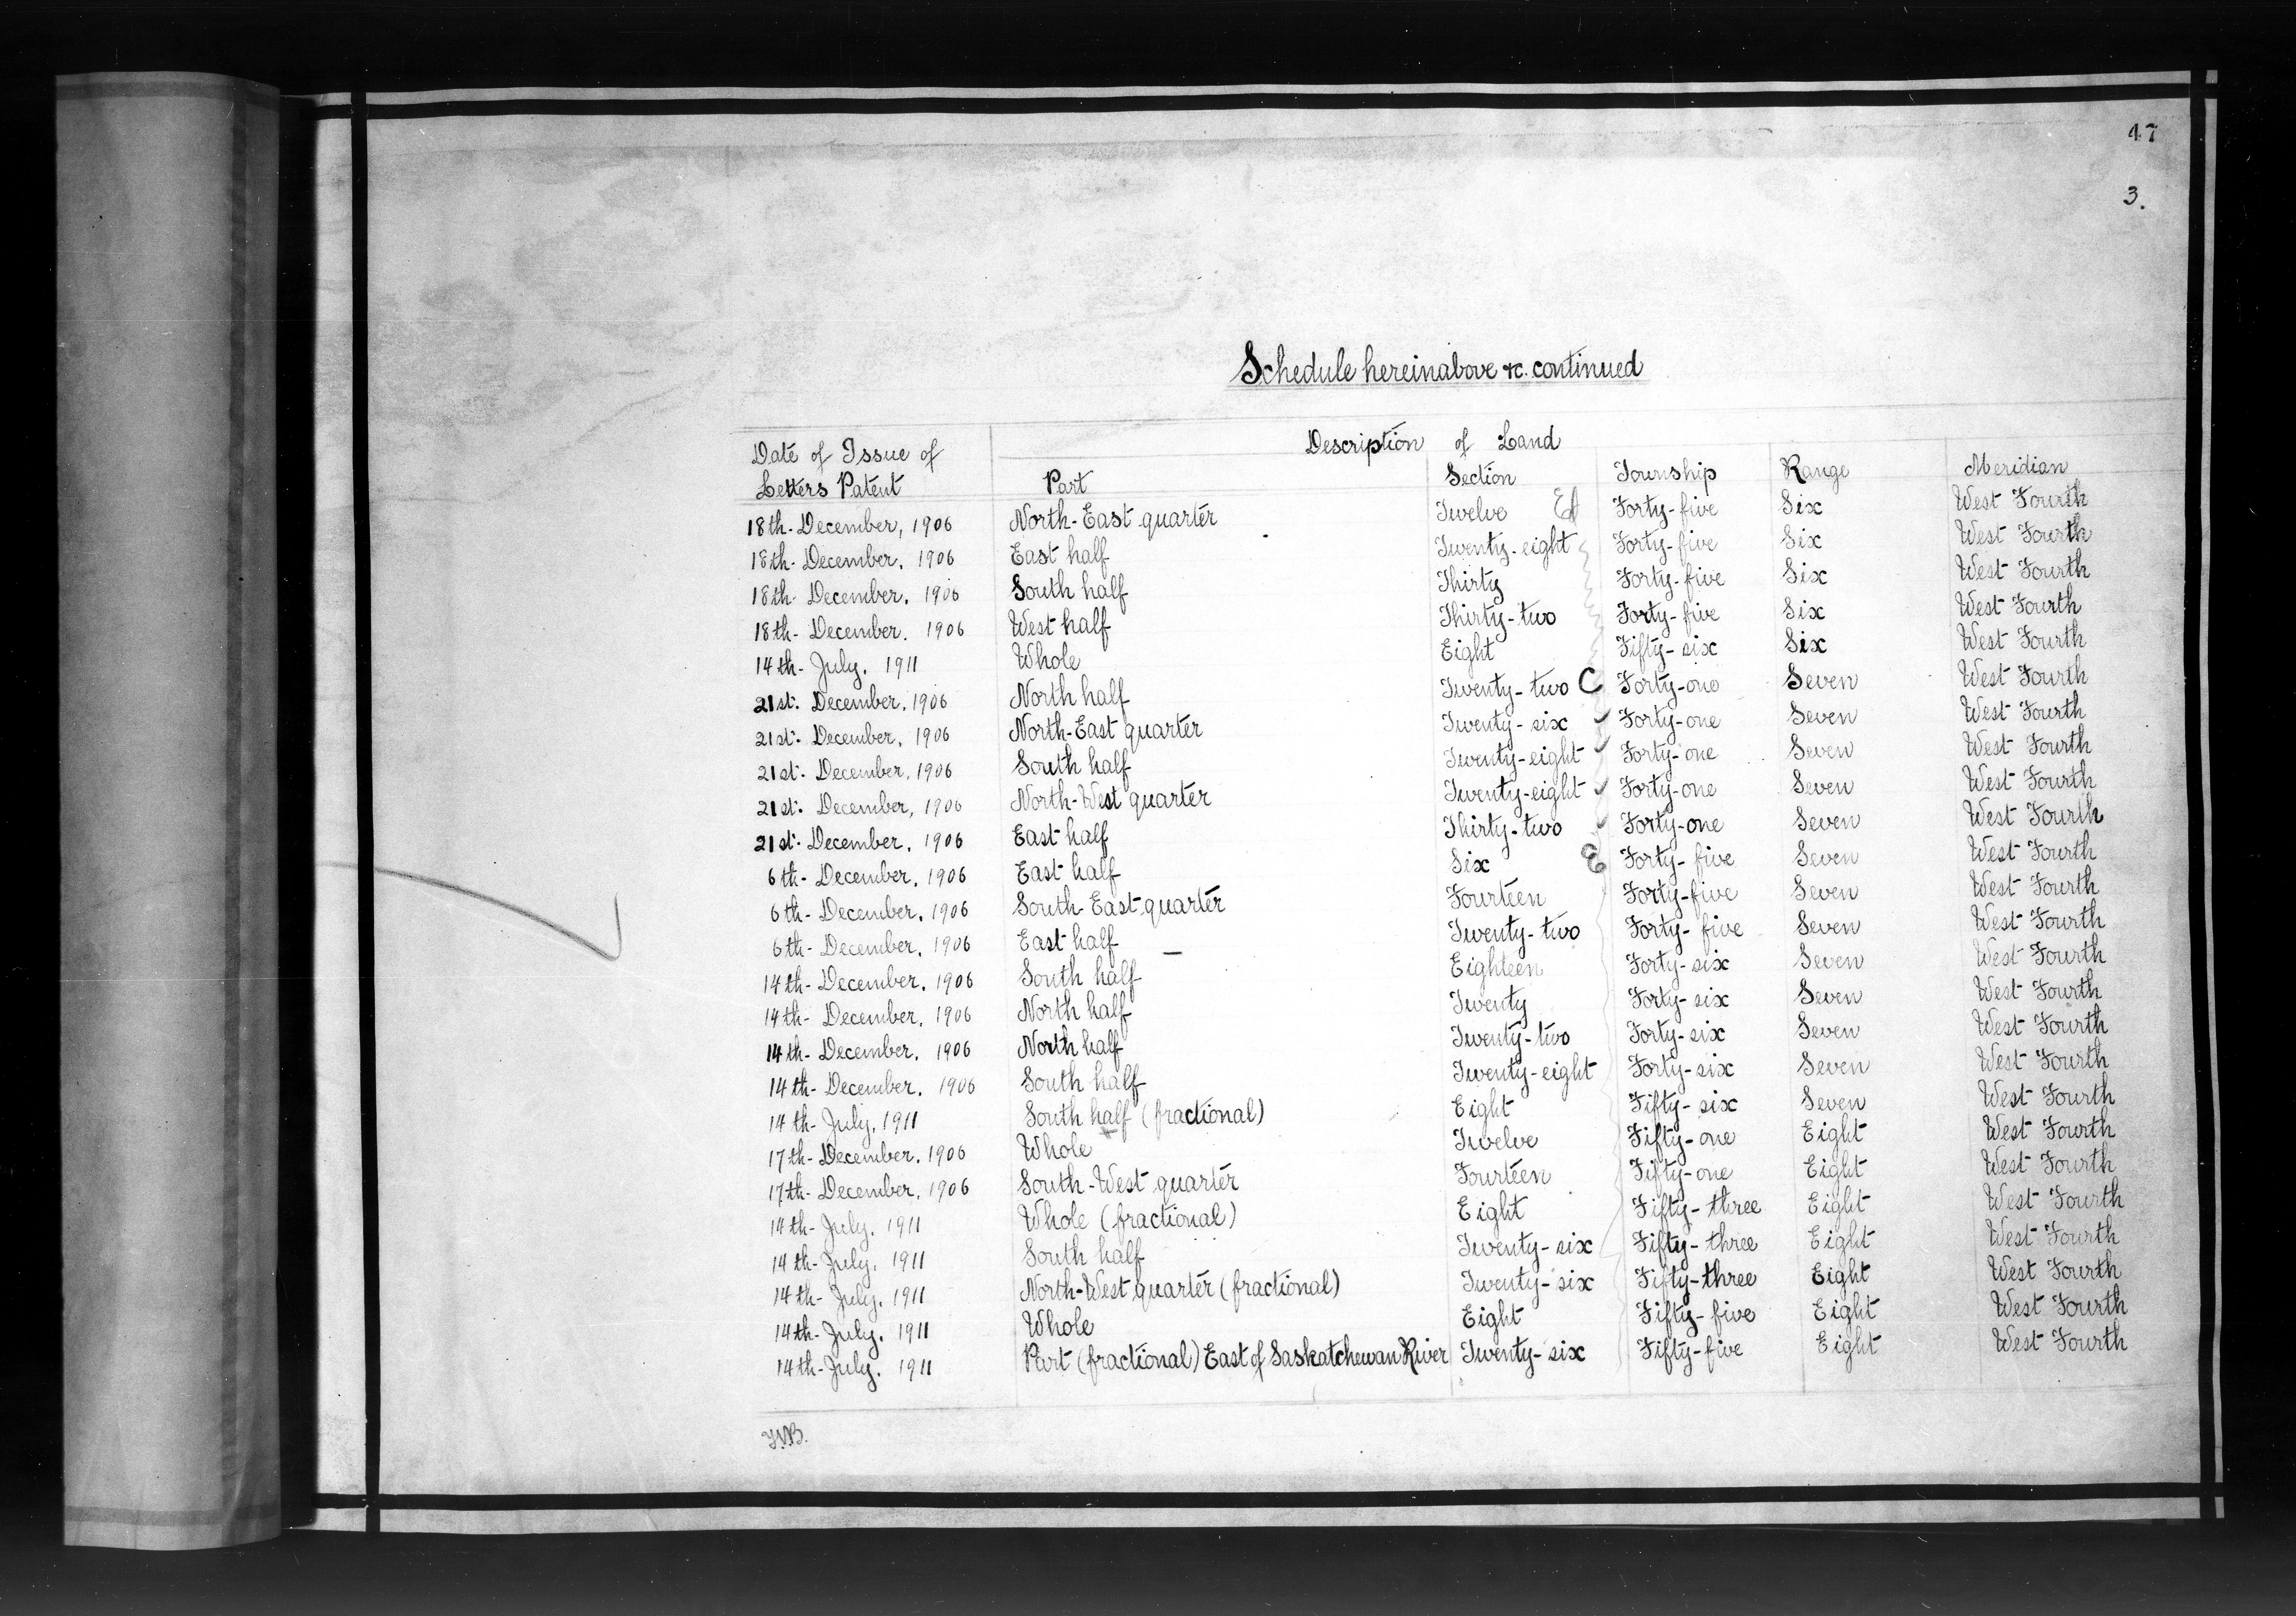 47
3.
Schedule hereinabove &c. continued
Date of Issue of Letters Patent | Description of Land
Part | Section | Township | Range | Meridian
18th- December, 1906 | North-East quarter | Twelve | Forty-five | Six | West Fourth
18th- December, 1906 | East half | Twenty-eight | Forty-five | Six | West Fourth
18th- December, 1906 | South half | Thirty | Forty-five | Six | West Fourth
18th- December. 1906 | West half | Thirty-two | Forty-five | Six | West Fourth
14th- July, 1911 | Whole | Eight | Fifty-six | Six | West Fourth
21st. December, 1906 | North half | Twenty-two C | Forty-one | Seven | West Fourth
21st. December, 1906 | North-East quarter | Twenty-six | Forty-one | Seven | West Fourth
21st. December, 1906 | South half | Twenty-eight | Forty-one | Seven | West Fourth
21st. December, 1906 | North-West quarter | Twenty-eight | Forty-one | Seven | West Fourth
21st. December, 1906 | East half | Thirty-two | Forty-one | Seven | West Fourth
6th- December, 1906 | East half | Six | Forty-five | Seven | West Fourth
6th- December, 1906 | South-East quarter | Fourteen | Forty-five | Seven | West Fourth
6th- December, 1906 | East half | Twenty-two | Forty-five | Seven | West Fourth
14th- December, 1906 | South half | Eighteen | Forty-six | Seven | West Fourth
14th- December, 1906 | North half | Twenty | Forty-six | Seven | West Fourth
14th- December, 1906 | North half | Twenty-two | Forty-six | Seven | West Fourth
14th- December, 1906 | South half | Twenty-eight | Forty-six | Seven | West Fourth
14th- July, 1911 | South half (fractional) | Eight | Fifty-six | Seven | West Fourth
17th- December, 1906 | Whole | Twelve | Fifty-one | Eight | West Fourth
17th- December, 1906 | South-West quarter | Fourteen | Fifty-one | Eight | West Fourth
14th- July, 1911 | Whole (fractional) | Eight | Fifty-three | Eight | West Fourth
14th- July, 1911 | South half | Twenty-six | Fifty-three | Eight | West Fourth
14th- July, 1911 | North-West quarter (fractional) | Twenty-six | Fifty-three | Eight | West Fourth
14th- July, 1911 | Whole | Eight | Fifty-five | Eight | West Fourth
14th- July, 1911 | Part (fractional) East of Saskatchewan River | Twenty-six | Fifty-five | Eight | West Fourth